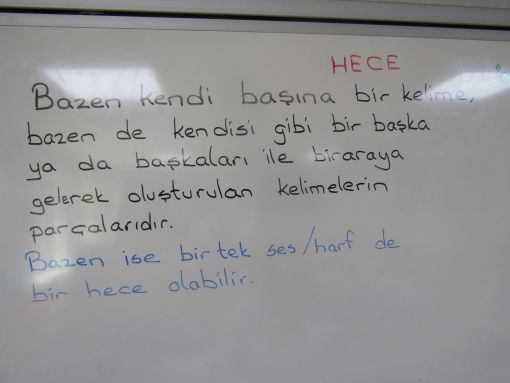 HECE
Bazen kendi başına bir kelime,
bazen de kendisi gibi bir başka
ya da başkaları ile biraraya
gelerek oluşturulan kelimelerin
parçalarıdır.
Bazen ise bir tek ses/harf de
bir hece olabilir.